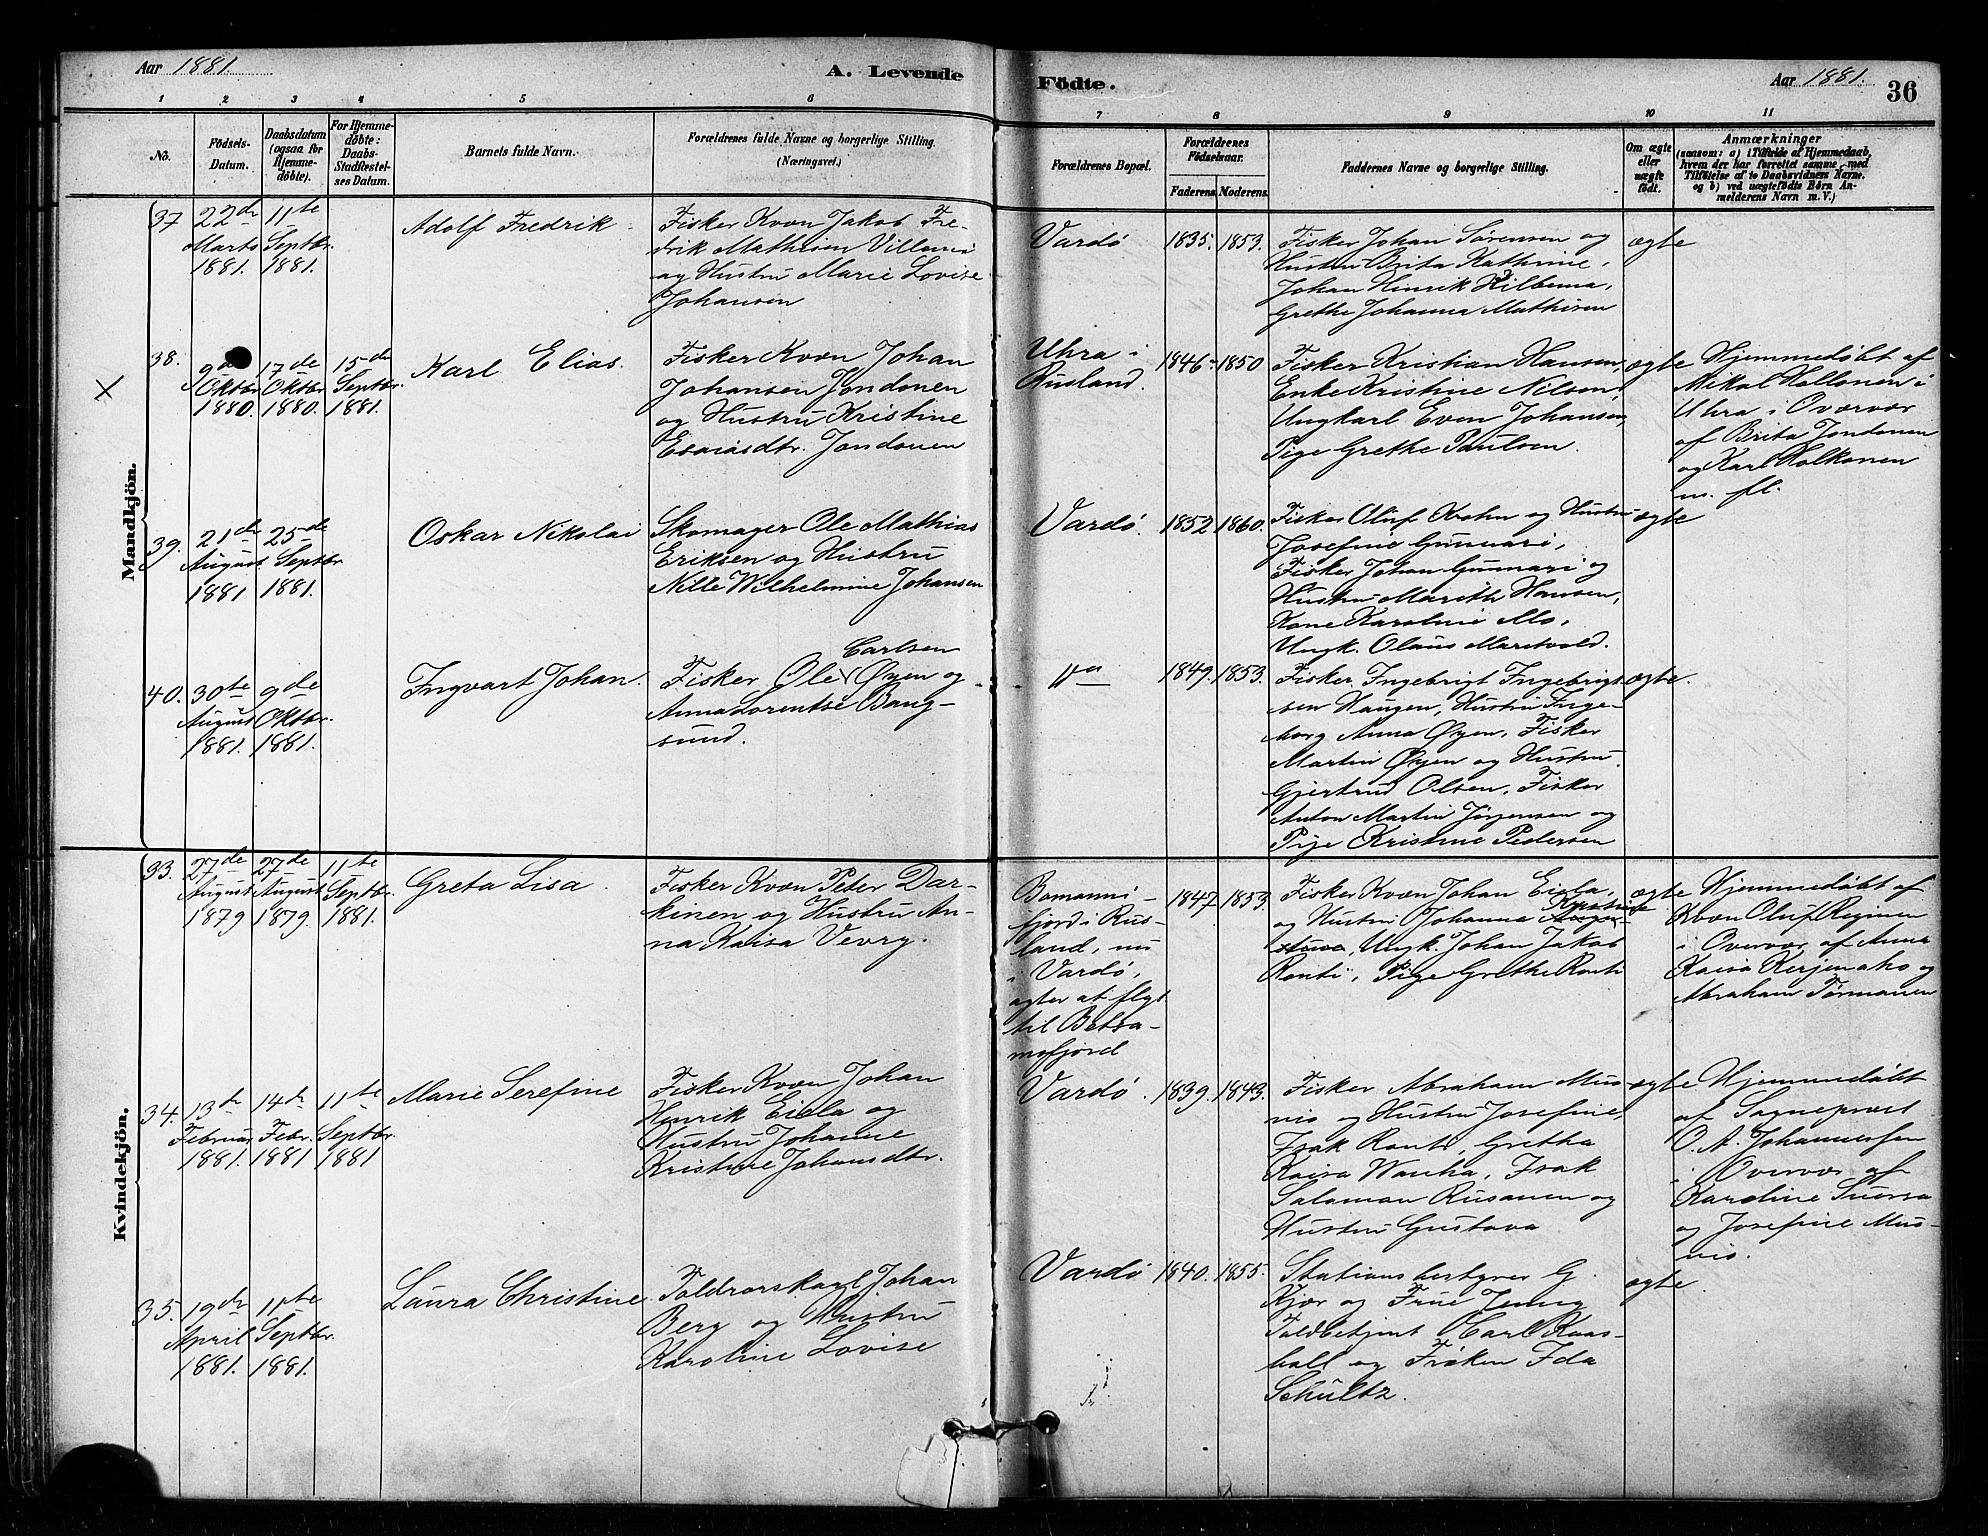 Aar 1881.
A. Levende
Födte.
Aar 1881.
36
1 2 3 4 5 6 7 8 9 10 11
No.
Födsels-
Datum.
Daabsdatum
(ogsaa for
Hjemme-
döbte).
For Hjemme-
döbte:
Daabs-
Stadfæstel-
ses Datum.
Barnets fulde Navn.
Forældrenes fulde Navne og borgerlige Stilling.
(Næringsvei.)
Forældrenes Bopæl.
Forældrenes
Födselsaar.
Faderens. Moderens.
Faddernes Navne og borgerlige Stilling.
Om ægte
eller
uægte
födt.
Anmærkninger
(saasom: a) i Tilfælde af Hjemmedaab,
hvem der har forrettet samme, med
Tilföielse af to Daabsvidners Navne.
og b) ved uægtefödte Börn An-
melderens Navn m. V.)
Mandkjön.
37
22de
Marts
1881.
11te
Septbr.
1881.
Adolf Fredrik
Fisker Kvæn Jakob Fre-
drik Mathisen
og Hustru Marie Lovise
Johansen
Vardö
1835. 1853.
Fisker Johan Sørensen og
Hustru Brita Kathrine,
Johan Hinrik
Grethe Johanna Mathisen
ægte
38.
9de
Oktbr.
1880.
17de
Oktbr.
1880.
15de
Septbr.
1881.
Karl Elias.
Fisker Kvæn Johan
Johansen Jondonen
og Hustru Kristine
Esaiasdtr. Jondonen
Uhra i
Rusland.
1846 1850
Fisker Kristian Hansen,
Enke Kristine Nilsen,
Ungkarl Even Johansen,
Pige Grethe Paulsen.
ægte
Hjemmedøbt af
Mikal Hollonen i
Uhra i Overvær
af Brita Jondonen
og Karl Holkonen
m. fl.
39.
21de
August
1881
25de
Septbr.
1881.
Oskar Nikolai
Skomager Ole Mathias
Eriksen og Hustru
Nille Wilhelmine Johansen
Vardö.
1852 1860.
Fisker Oluf Krohn og Hustru
Josefine Gunnari,
Fisker Johan Gunnari og
Hustru Mareth Hansen,
Kone Karoline Mo,
Ungk. Olaus
ægte
40.
30te
August
1881.
9de
Oktbr.
1881.
Ingvart Johan.
Carlsen
Fisker Ole Øyen og
Anna Lorentse Bang-
sund.
1849. 1853.
Fisker Ingebrigt Ingebrigt-
sen Haugen, Hustru Inge-
borg Anna Øyen, Fisker
Martin Øyen og Hustru
Gjertrud Olsen, Fisker
Anton Martin Jørgensen og
Pige Kristine Pedersen
ægte.
Kvindekjön.
33.
27de
August
1879
27de
August
1879.
11te
Septbr.
1881.
Greta Lisa.
Fisker Kvæn Peter Dar-
kinen og Hustru An-
na Kaisa Vevry.
Bomanni-
fjord i Rus-
land, nu
i Vardö,
agter at flyt
til Betsa-
mofjord
1847 1853.
Fisker Kvæn Johan Eiela,
og Hustru Johanna Kristine
Ungk. Johan Jakob
Ronti, Pige Grethe Ronti
ægte
Hjemmedøbt af
Kvæn Oluf Reginen
i Overvær af Anna
Kaisa Kerjenaho og
Abraham Tormanen
34.
13de
Februar
1881.
14de
Febr.
1881
11te
Septbr.
1881
Marie Serefine
Fisker Kvæn Johan
Henrik Eiela og
Hustru Johanne
Kristine Johansdtr.
Vardö.
1839. 1843.
Fisker Abraham Mus-
nis og Hustru Josefine,
Isak Ronti, Gretha
Kaisa Wanha, Isak
Salamon Rusanen og
Hustru Gustava
ægte
Hjemmedøbt
af Sognepræst
O. A. Johannessen
i Overvær af
Karoline Suorsa
og Josefine Mus-
nis.
35.
19de
April
1881.
11te
Septbr.
1881.
Laura Christine.
Toldrorskarl Johan
Berg og Hustru
Karoline Lovise
Vardö
1840. 1855.
Stationsbestyrer G.
Kjær og Frue Jenny
Toldbetjent Carl Raas-
ball og Frøken Ida
Schultz.
ægte.